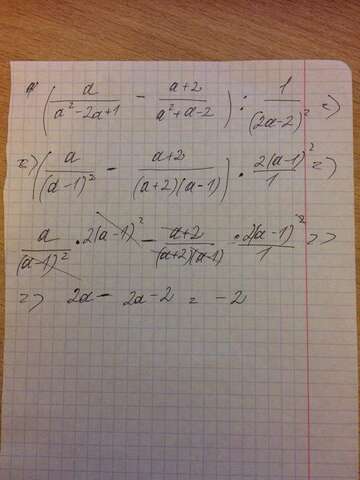 a) (a/(a²-2a+1) - (a+2)/(a²+a-2)) : 1/(2a-2)² =>
=> (a/(a-1)² - (a+2)/((a+2)(a-1))) · 2(a-1)²/1 =>
a/(a-1)² · 2(a-1)² - (a+2)/((a+2)(a-1)) · 2(a-1)²/1 =>
=> 2a - 2a - 2 = -2